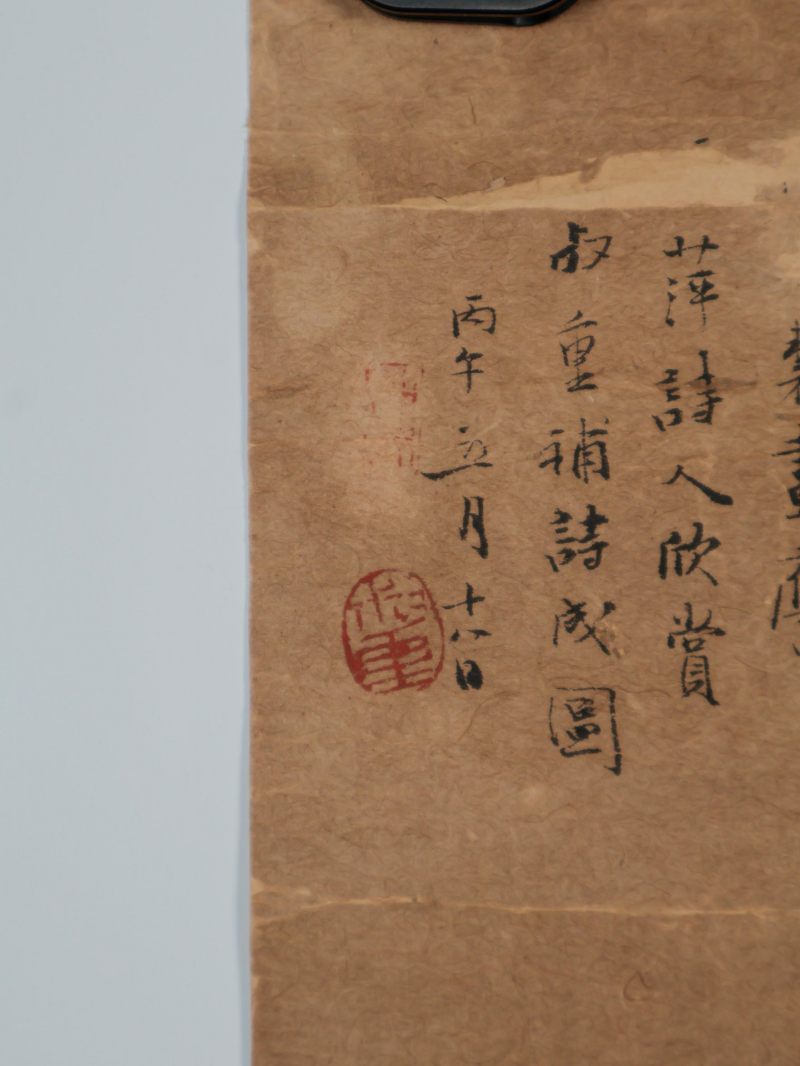 萍詩人欣賞
叔重補詩成圖
丙午五月十八日